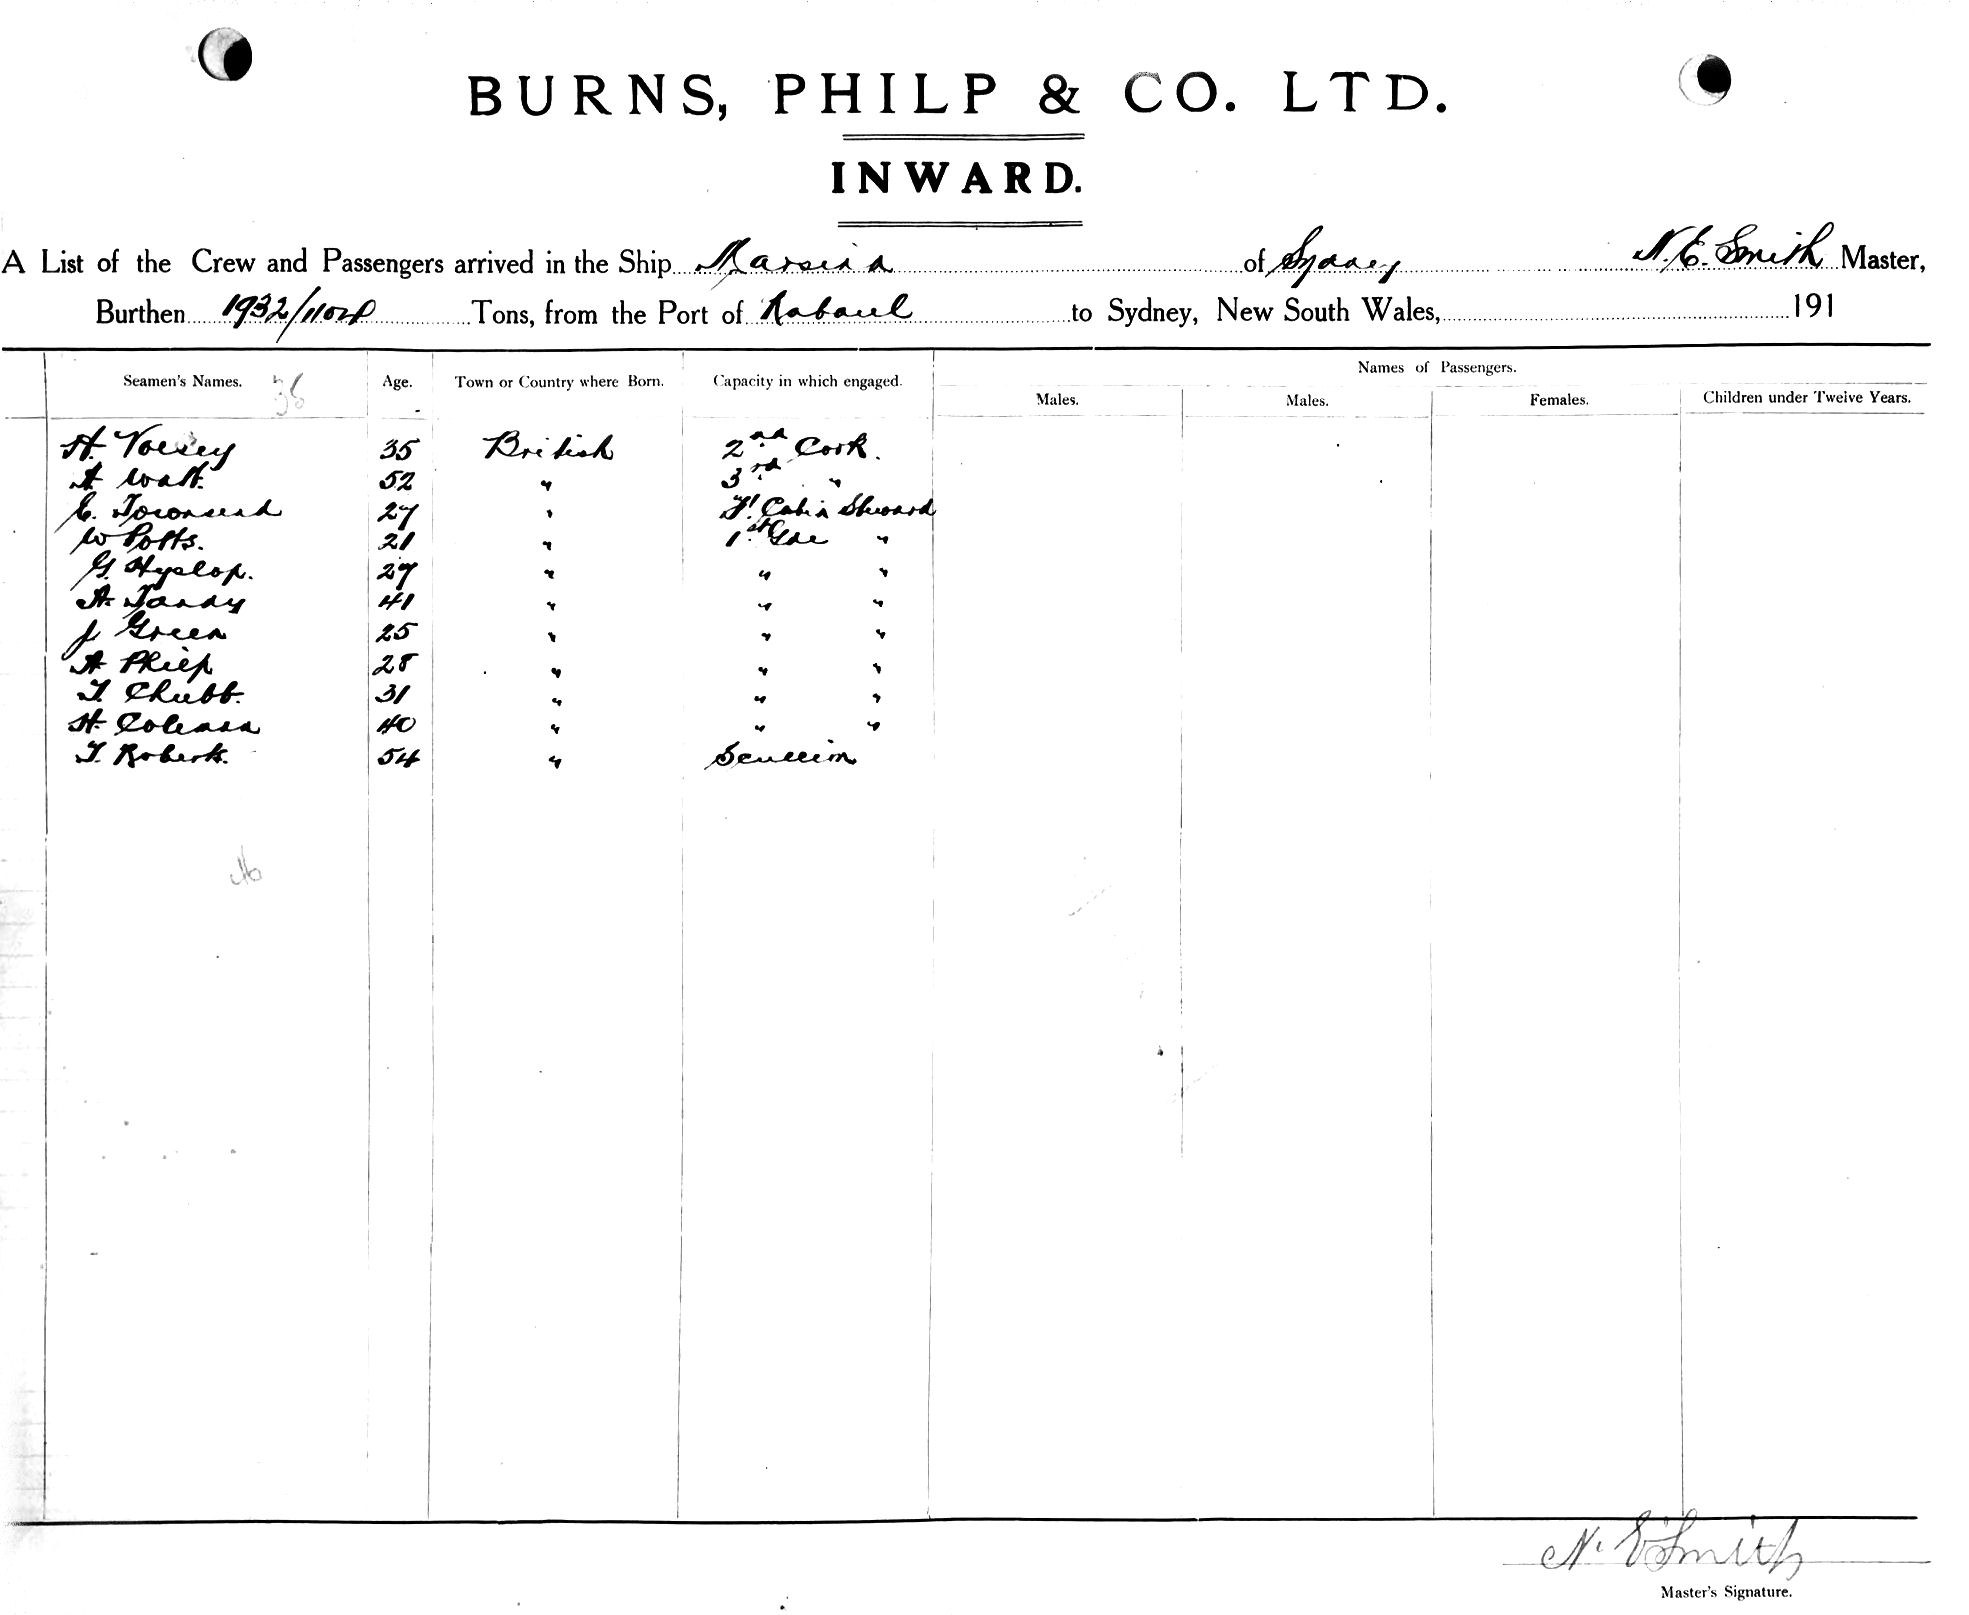 BURNS, PHILP & CO. LTD.
INWARD.
A List of the Crew and Passengers arrived in the Ship Marsina of Sydney N. E. Smith Master,
Burthen 1932/ Tons, from the Port of Rabaul to Sydney, New South Wales, 191
Names of Passengers.
Seamen's Names. Age. Town or Country where Born. Capacity in which engaged. Males. Males. Females. Children under Twelve Years.
H. Voesey 35 British 2nd Cook.
A Watt. 52 " 3rd "
E. Townsend 27 " Cabin Steward
W Potts. 21 " 1st "
G. Hyslop. 27 " " "
A. Tandy 41 " " "
J Green 25 " " "
A Philp 28 " " "
T. Chubb. 31 " " "
H. Coleman 40 " " "
T. Roberts. 54 " Scullion
N. E Smith
Master's Signature.